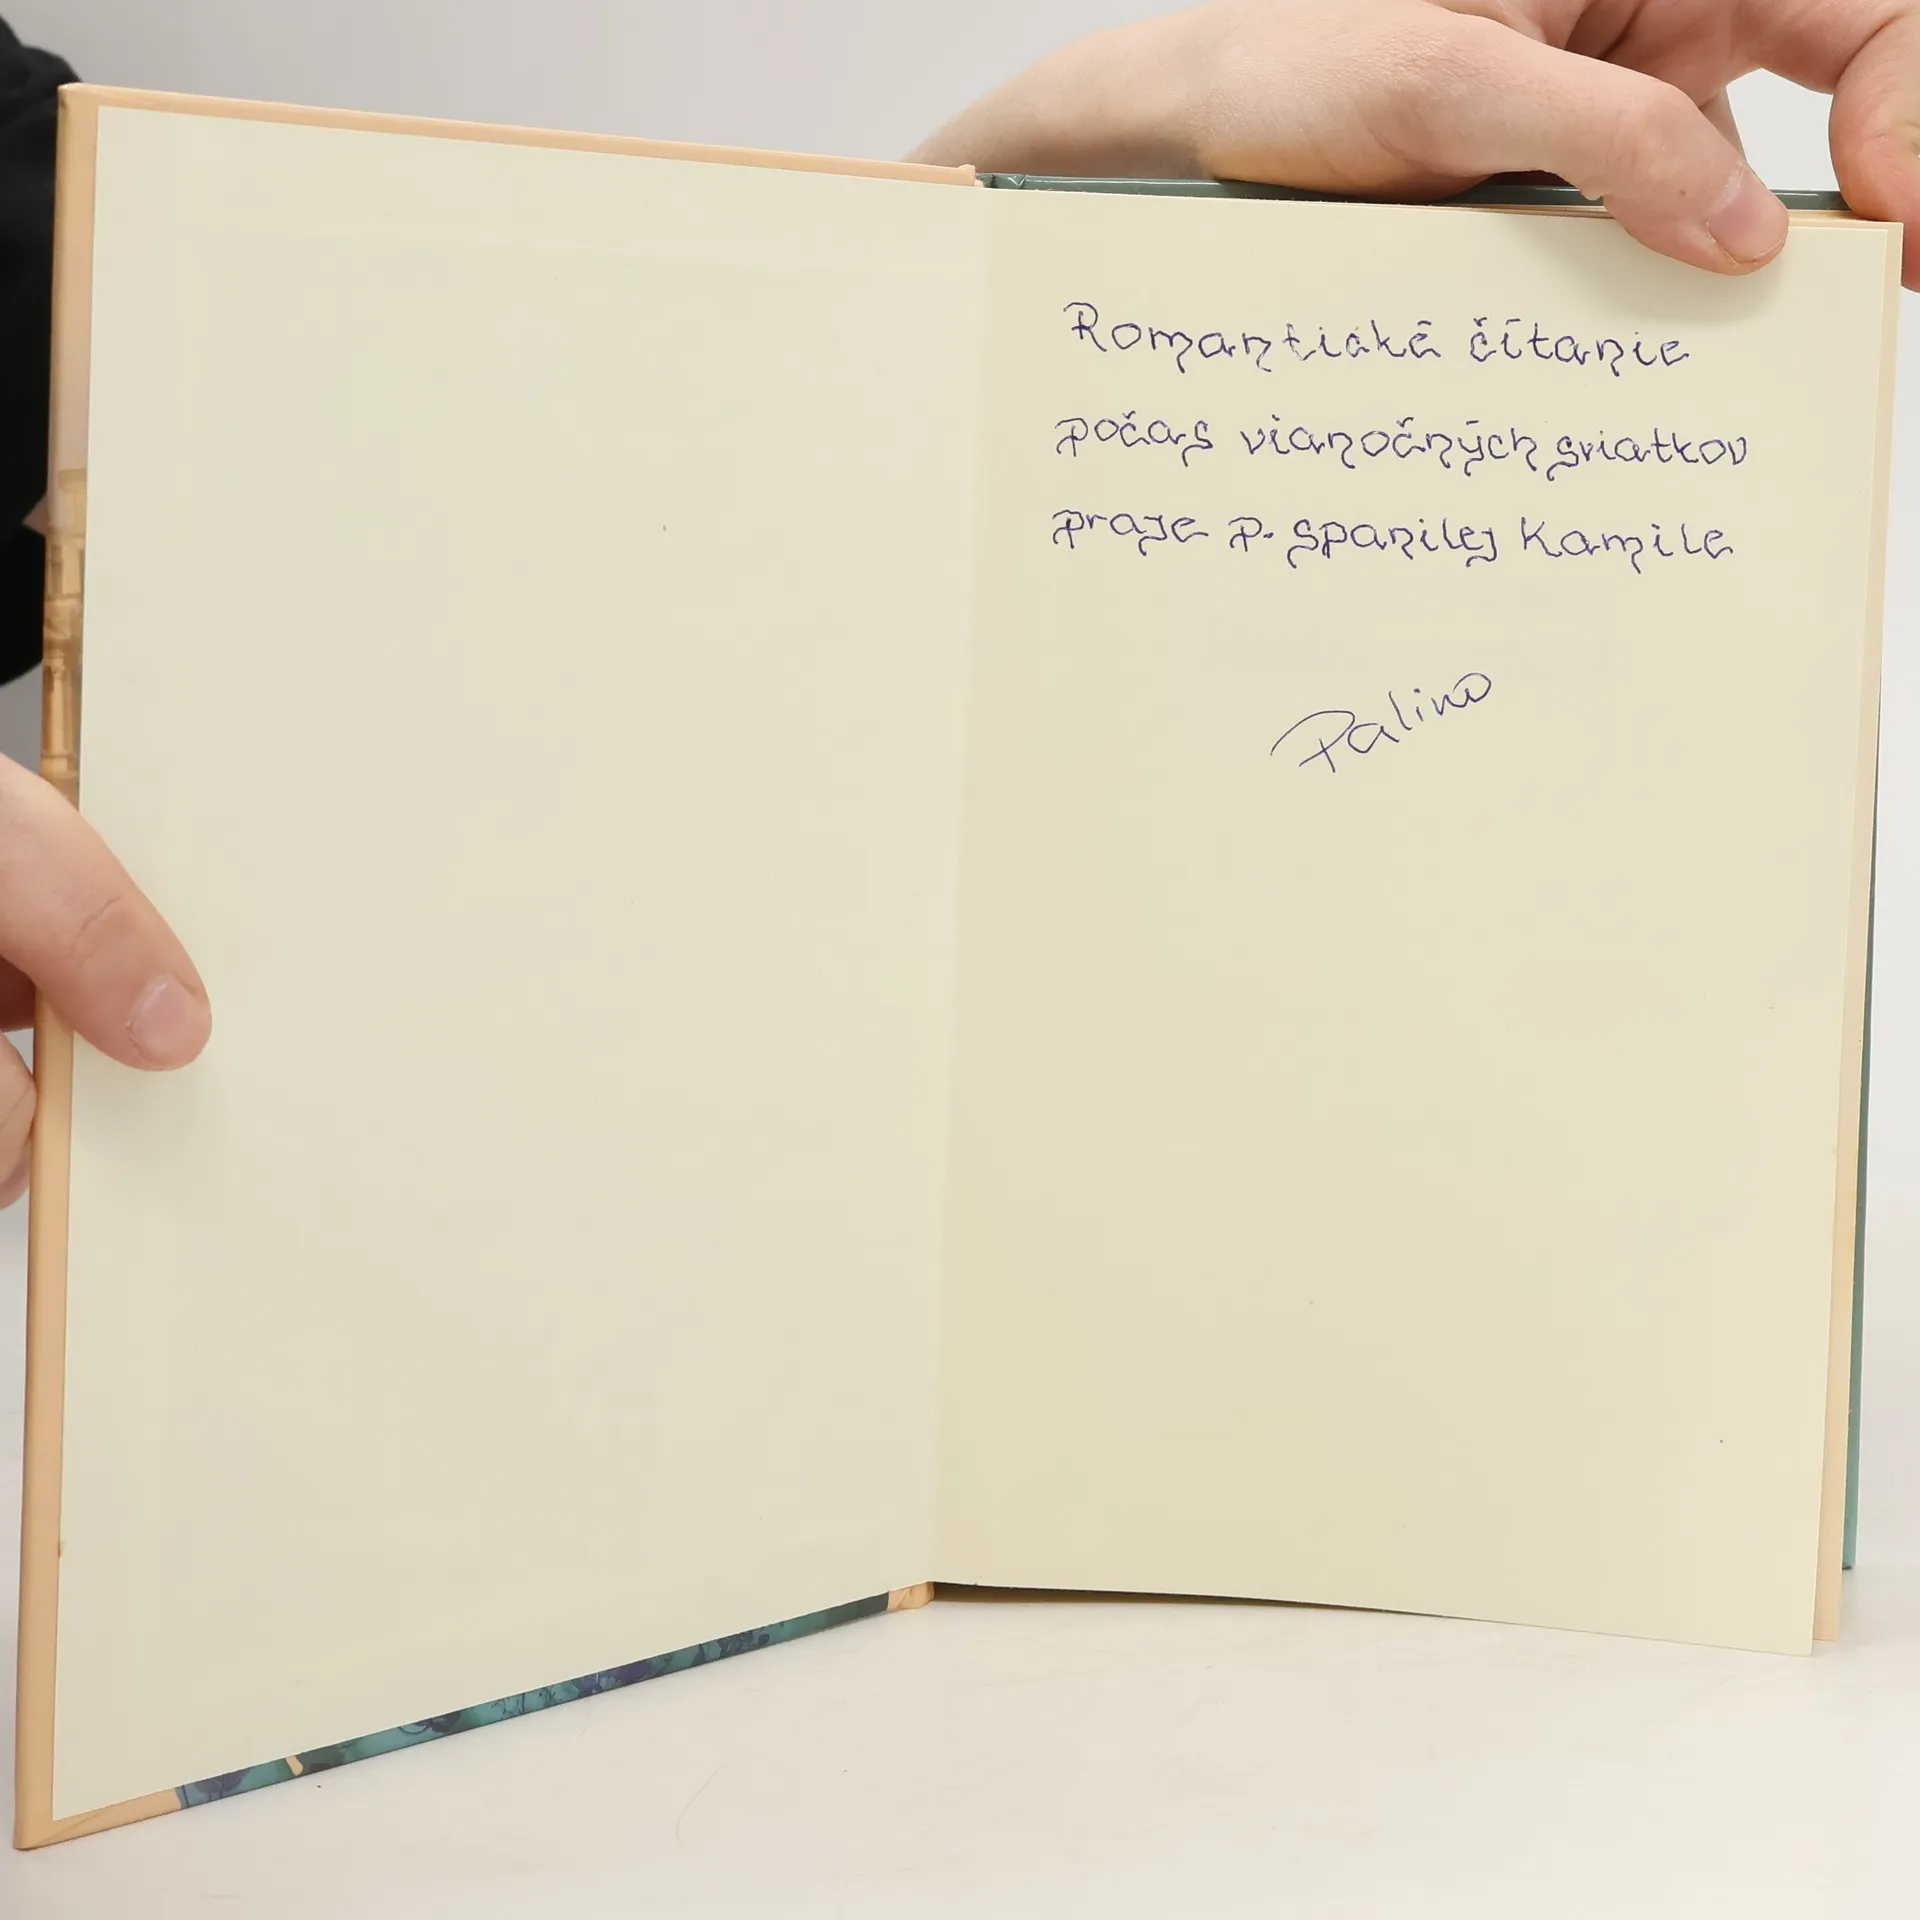 Romantické čítanie
počas vianočných sviatkov
praje p. spanilej Kamile
Palino